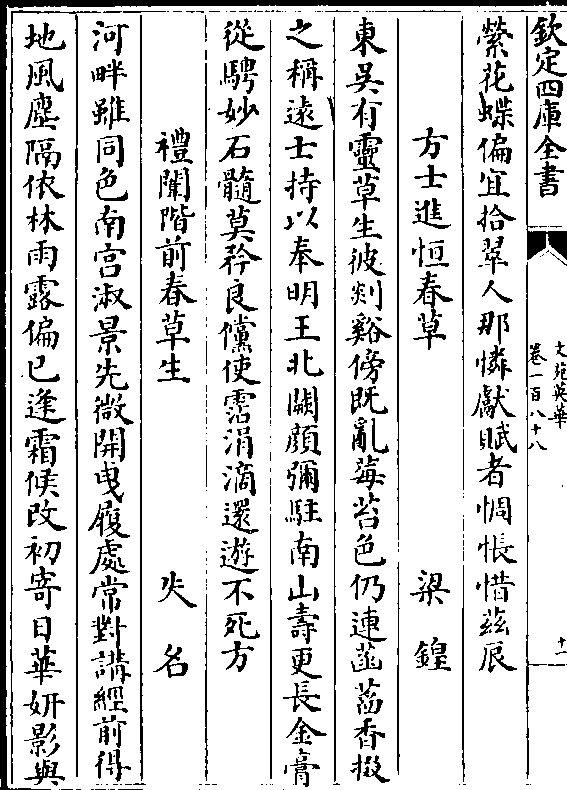 欽定四庫全書
文苑英華
卷一百八十八
十一
縈花蝶偏宜拾翠人那憐獻賦者惆悵惜茲辰
方士進恒春草　梁鍠
東吳有靈草生彼剡谿傍既亂莓苔色仍連菡萏香掇
之稱遠士持以奉明王北闕顔彌駐南山壽更長金膏
從騁妙石髓莫矜良儻使霑涓滴還遊不死方
禮闈階前春草生　失名
河畔雖同色南宫淑景先微開曳履處常對講經前得
地風塵隔依林雨露偏已逢霜候改初寄日華妍影與